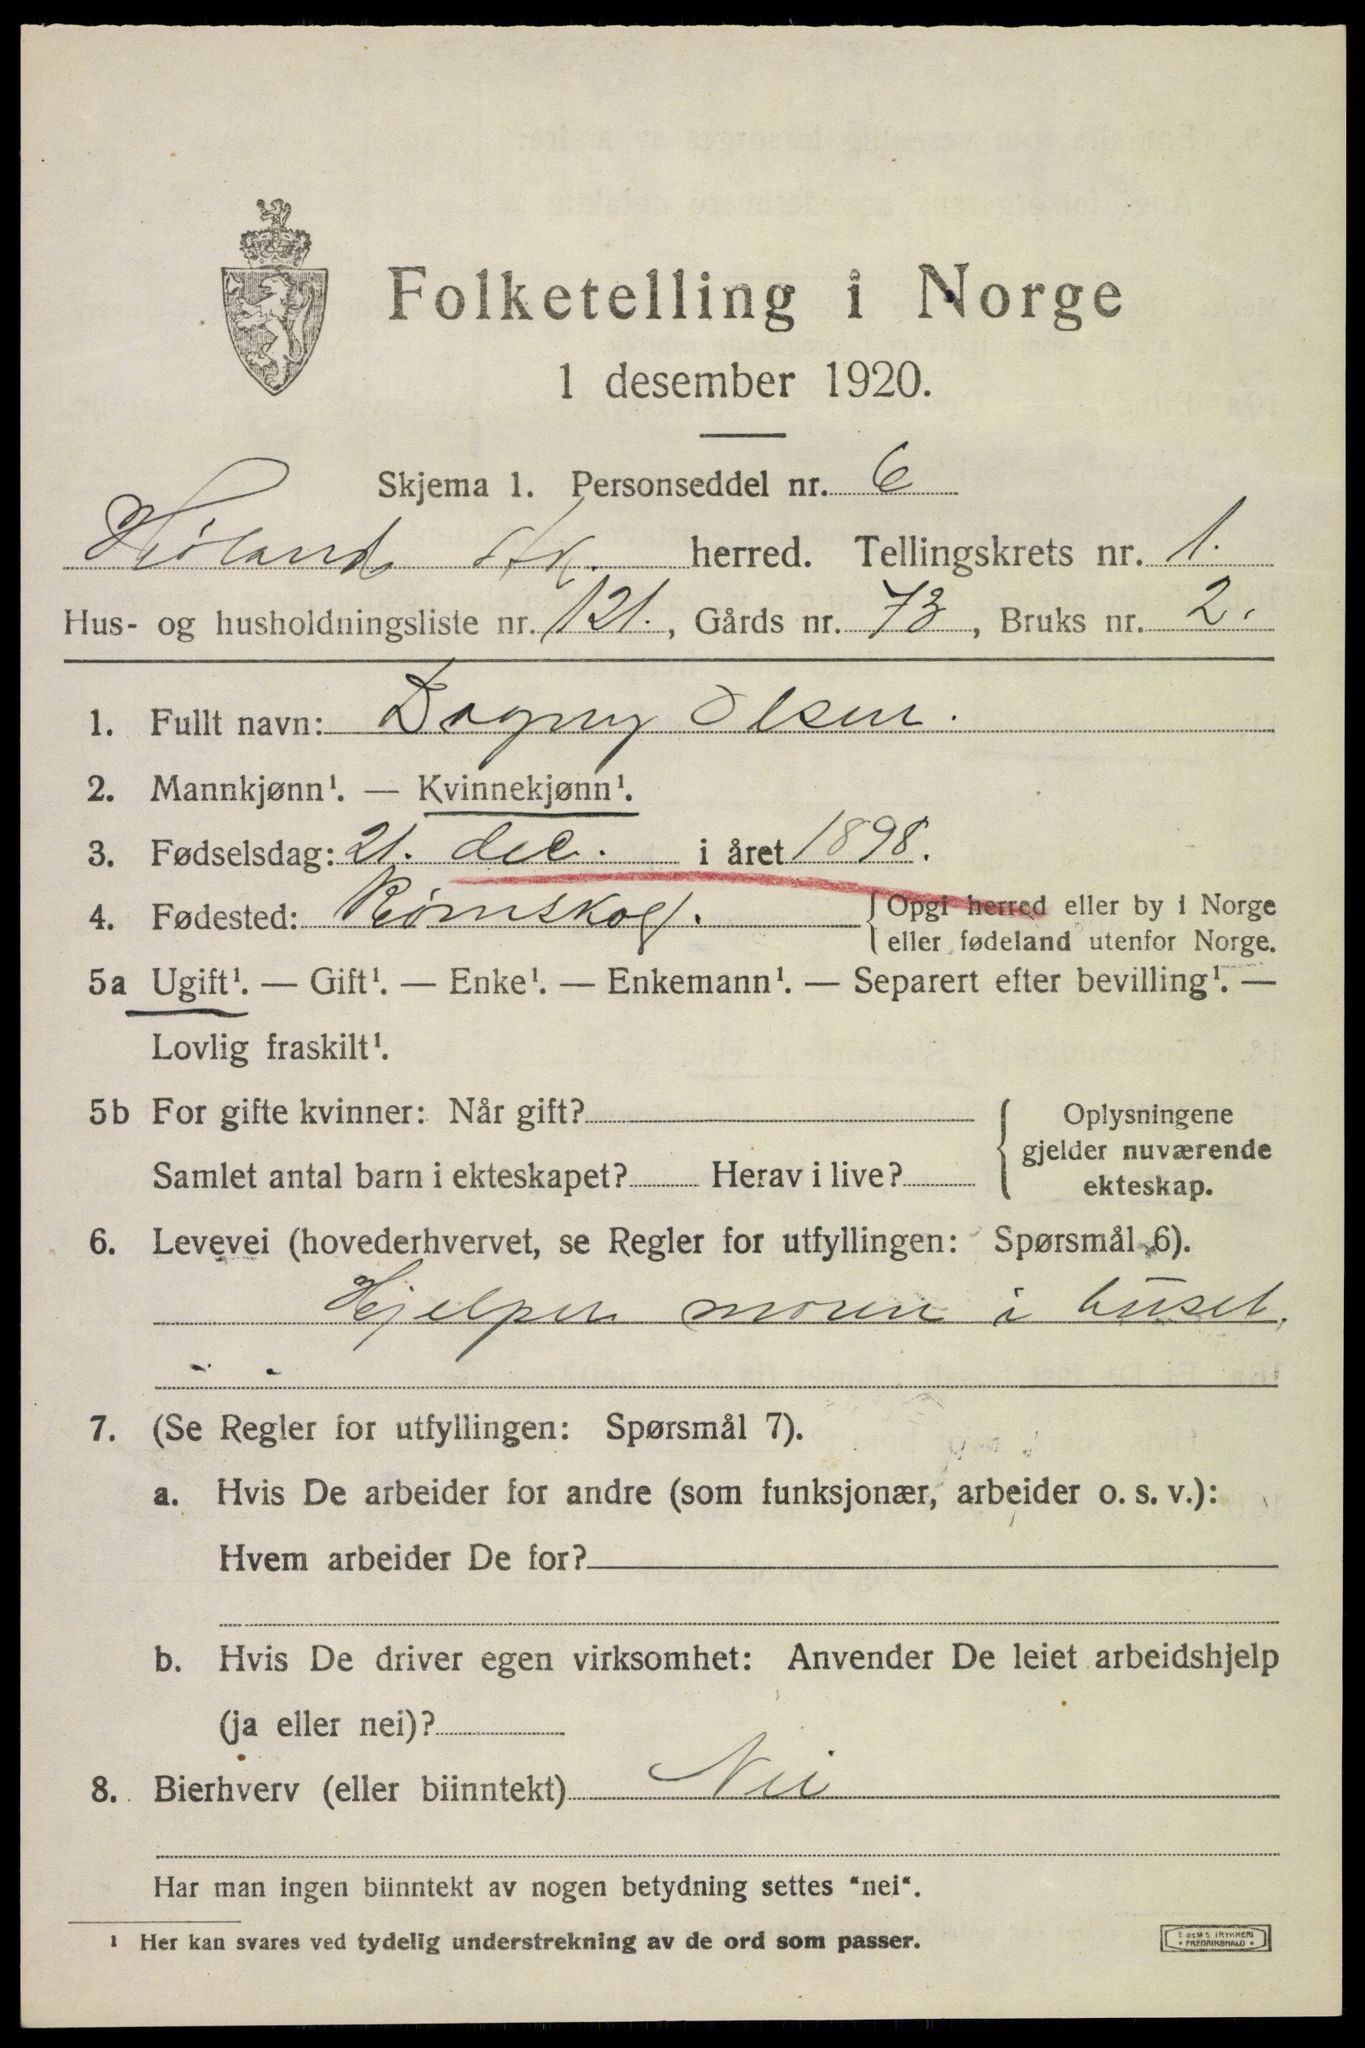 Folketelling i Norge
1 desember 1920.
Skjema 1. Personseddel nr. 6
Høland herred. Tellingskrets nr. 1.
Hus- og husholdningsliste nr. 121., Gårds nr. 73, Bruks nr. 2.
1. Fullt navn: Dagny Olsen.
2. Mannkjønn¹. — Kvinnekjønn¹.
3. Fødselsdag: 21. dec. i året 1898.
4. Fødested: Rømskog. {Opgi herred eller by i Norge
eller fødeland utenfor Norge.
5a Ugift¹. — Gift¹. — Enke¹. — Enkemann¹. — Separert efter bevilling¹. —
Lovlig fraskilt¹.
5b For gifte kvinner: Når gift?
Samlet antal barn i ekteskapet? Herav i live?
Oplysningene
gjelder nuværende
ekteskap.
6. Levevei (hovederhvervet, se Regler for utfyllingen: Spørsmål 6).
Hjelper moren i huset.
7. (Se Regler for utfyllingen: Spørsmål 7).
a. Hvis De arbeider for andre (som funksjonær, arbeider o. s. v.):
Hvem arbeider De for?
b. Hvis De driver egen virksomhet: Anvender De leiet arbeidshjelp
(ja eller nei)?
8. Bierhverv (eller biinntekt) Nei
Har man ingen biinntekt av nogen betydning settes "nei".
¹ Her kan svares ved tydelig understrekning av de ord som passer.
FREDRIKSHALD